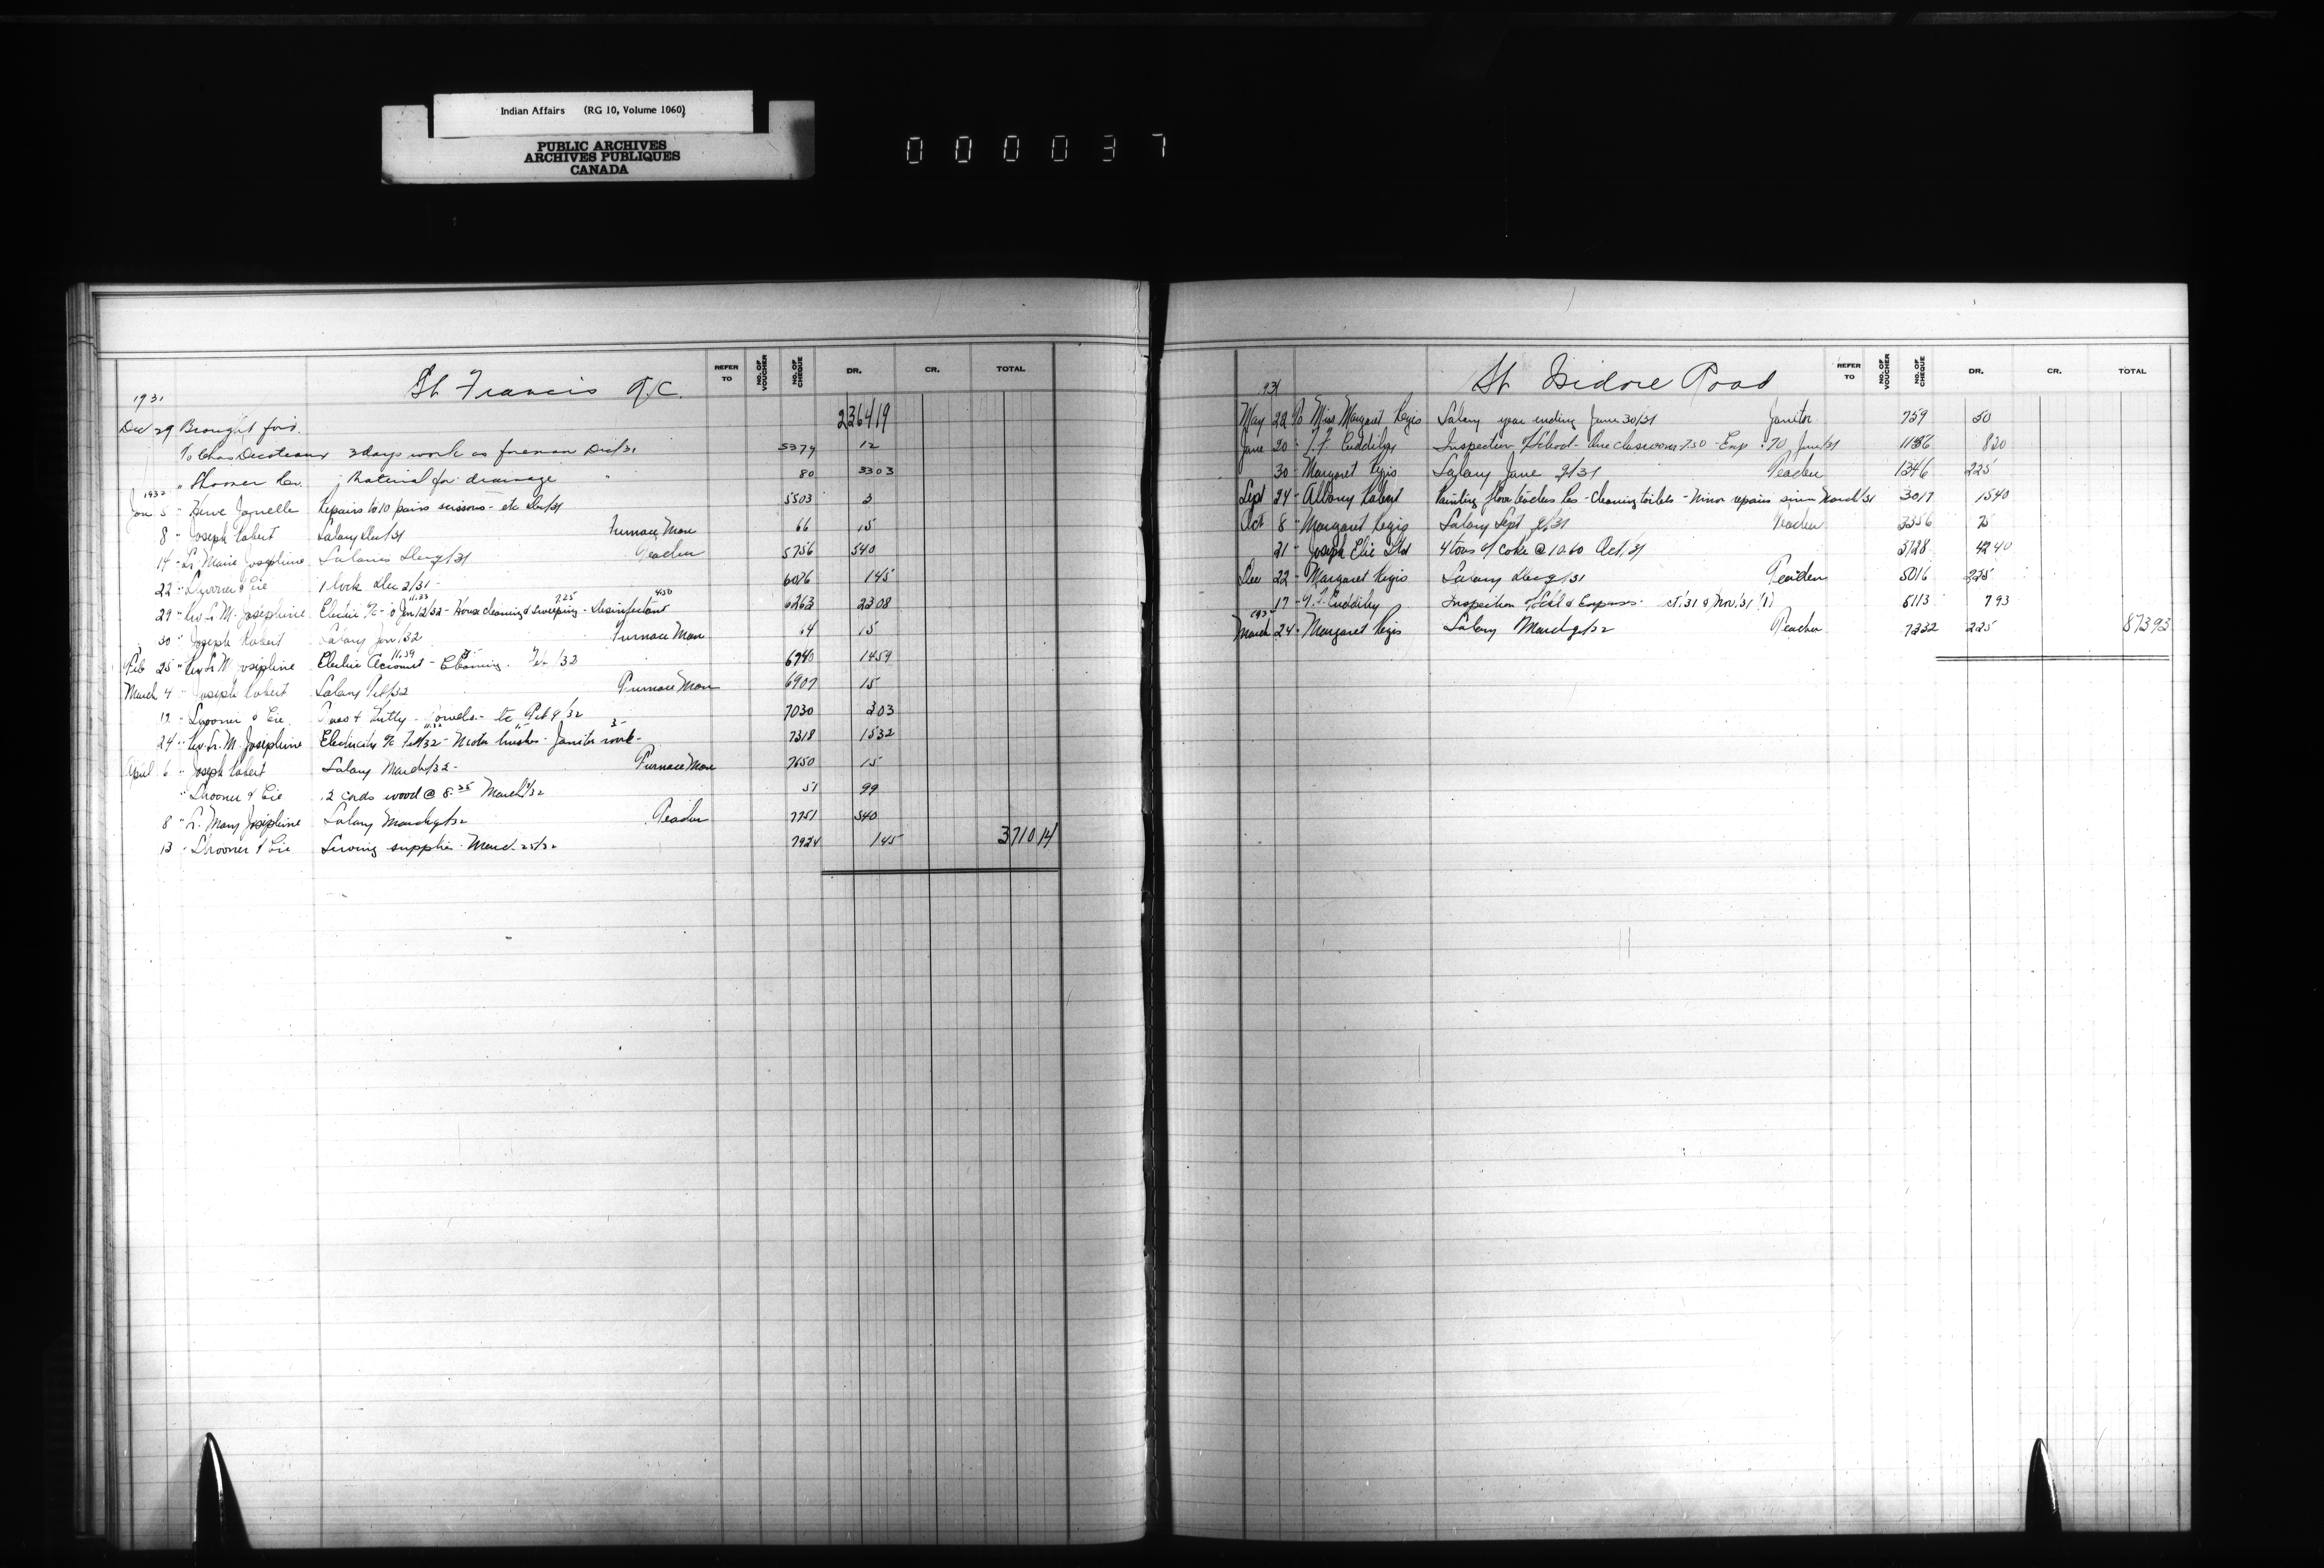 Indian Affairs (RG 10, Volume 1060)
PUBLIC ARCHIVES
ARCHIVES PUBLIQUES
CANADA
000037
St. Francis R.C. REFER TO NO. OF VOUCHER NO. OF CHEQUE DR. CR. TOTAL
1931
Dec 29 Brought ford. 2364 19
To Chas Decoteaux 3 days work as foreman Dec/31 5374 12
" Shooner Material for drainage " 80 33 03
1932
Jan 5 " Herve Janelle Repairs to 10 pairs scissors - etc Dec/31 5503 3
8 " Joseph Robert Salary Dec/31 Furnace Man 66 15
14 " Sr. Marie Josephine Salaries Dec q/31 Teacher 5756 540
22 " Shooner & Cie 1 lock Dec 2/31 - 6076 1 45
29 " Rev. Sr. M. Josephine Electric % - Jan 12/32 - 11.33 House cleaning & sweeping - 7.25 Disinfectant 4.50 6263 23 08
30 " Joseph Robert Salary Jan/32 Furnace Man 64 15
Feb 25 " Rev. Sr. M. Josephine Electric Account - 11.59 Cleaning - 3- Feb/32 6740 14 59
March 4 " Joseph Robert Salary Feb/32 Furnace Man 6907 15
12 - Shooner & Cie & Putty - etc Feb 9/32 7030 3 03
24 " Rev. Sr. M. Josephine Electricity % Feb/32 - brushes - Janitor work - 3- 7318 15 32
April 6 " Joseph Robert Salary March/32 - Furnace Man 7650 15
" Shooner & Cie 12 cords wood @ 8.25 March/32 51 99
8 " Sr. Mary Josephine Salary March q/32 Teacher 7751 540
13 - Shooner & Cie Sewing supplies - March 25/32 7924 1 45 3710 14
St. Isidore Road REFER TO NO. OF VOUCHER NO. OF CHEQUE DR. CR. TOTAL
1931
May 22 To Miss Margaret Regis Salary year ending June 30/31 Janitor 759 50
June 20 - T.F. Cuddihy Inspection of School - One classroom 7.50 - Exp .70 June/31 1136 8 20
30 - Margaret Regis Salary June q/31 Teacher 1346 225
Sept 24 - Albany Painting floor teachers Res - Cleaning toilets - Minor repairs since March/31 3017 15 40
Oct 8 - Margaret Regis Salary Sept q/31 Teacher 3356 75
21 - Joseph Elie Ltd 4 tons of coke @ 10.60 Oct/31 3728 42 40
Dec 22 - Margaret Regis Salary Dec q/31 Teacher 5016 225
17 - T.F. Cuddihy Inspection of Schl & Expenses - Oct/31 & Nov/31 (1) 5113 7 93
1932
March 24 - Margaret Regis Salary March q/32 Teacher 7232 225 873 93